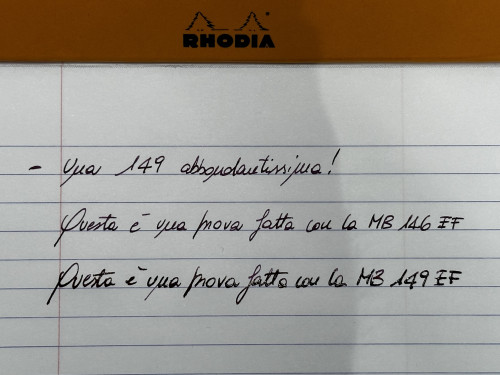 RHODIA
- una 149 abbondantissima!
Questa è una prova fatta con la MB 146 EF
Questa è una prova fatta con la MB 149 EF